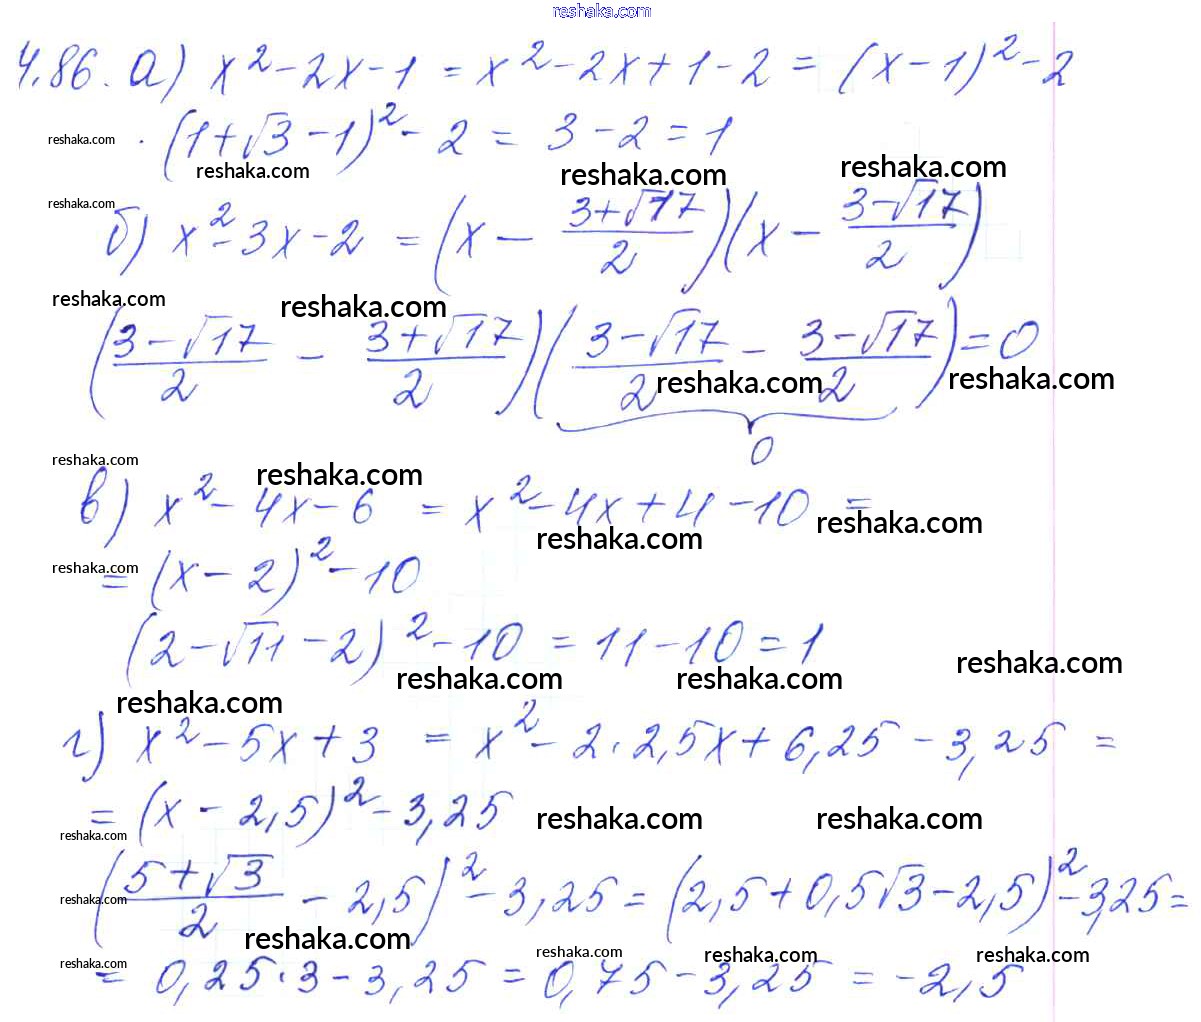 reshaka.com
4.86. а) x² - 2x - 1 = x² - 2x + 1 - 2 = (x - 1)² - 2
reshaka.com · (1 + √3 - 1)² - 2 = 3 - 2 = 1
reshaka.com reshaka.com reshaka.com
reshaka.com
б) x² - 3x - 2 = (x - (3+√17)/2)(x - (3-√17)/2)
reshaka.com reshaka.com
((3-√17)/2 - (3+√17)/2)((3-√17)/2 - (3-√17)/2) = 0
reshaka.com reshaka.com
0
reshaka.com reshaka.com
в) x² - 4x - 6 = x² - 4x + 4 - 10 =
reshaka.com reshaka.com
reshaka.com
= (x - 2)² - 10
(2 - √11 - 2)² - 10 = 11 - 10 = 1
reshaka.com reshaka.com reshaka.com
reshaka.com
г) x² - 5x + 3 = x² - 2 · 2,5x + 6,25 - 3,25 =
= (x - 2,5)² - 3,25
reshaka.com reshaka.com reshaka.com
((5+√3)/2 - 2,5)² - 3,25 = (2,5 + 0,5√3 - 2,5)² - 3,25 =
reshaka.com
reshaka.com reshaka.com reshaka.com reshaka.com
reshaka.com
= 0,25 · 3 - 3,25 = 0,75 - 3,25 = -2,5